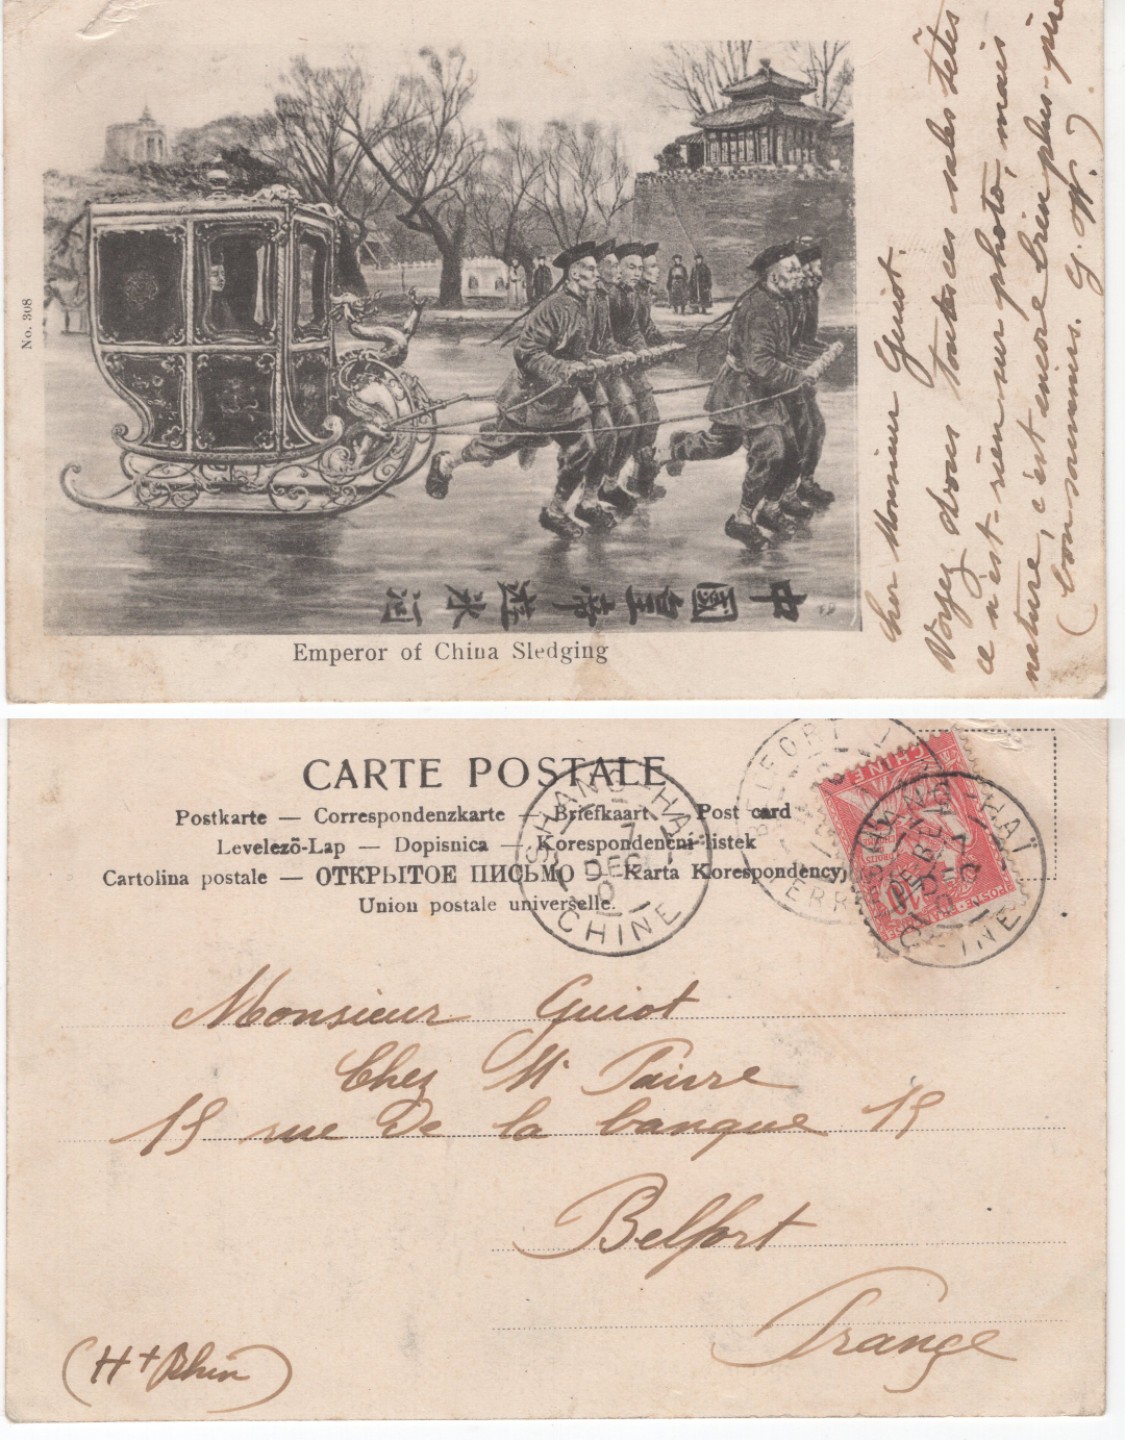 No. 308
中國皇帝遊冰河
Emperor of China Sledging
cher Monsieur Guiot.
Voyez vous toutes ces sales têtes
ce n'est rien sur photo, mais
nature, c'est encore bien plus pire
(bon souvenirs. G. W.)
CARTE POSTALE
Postkarte — Correspondenzkarte — Briefkaart — Post card
Levelezõ-Lap — Dopisnica — Korespondencni-listek
Cartolina postale — ОТКРЫТОЕ ПИСЬМО — Karta Korespondency
Union postale universelle.
SHANG-HAI
7
DEC
0
CHINE
BELFORT
TERR
CHINE
POSTE FRANÇAISE
10
SHANG-HAÏ
DEC
CHINE
Monsieur Guiot
Chez Mr Faivre
15 rue De la banque 15
Belfort
France
(Ht Rhin)